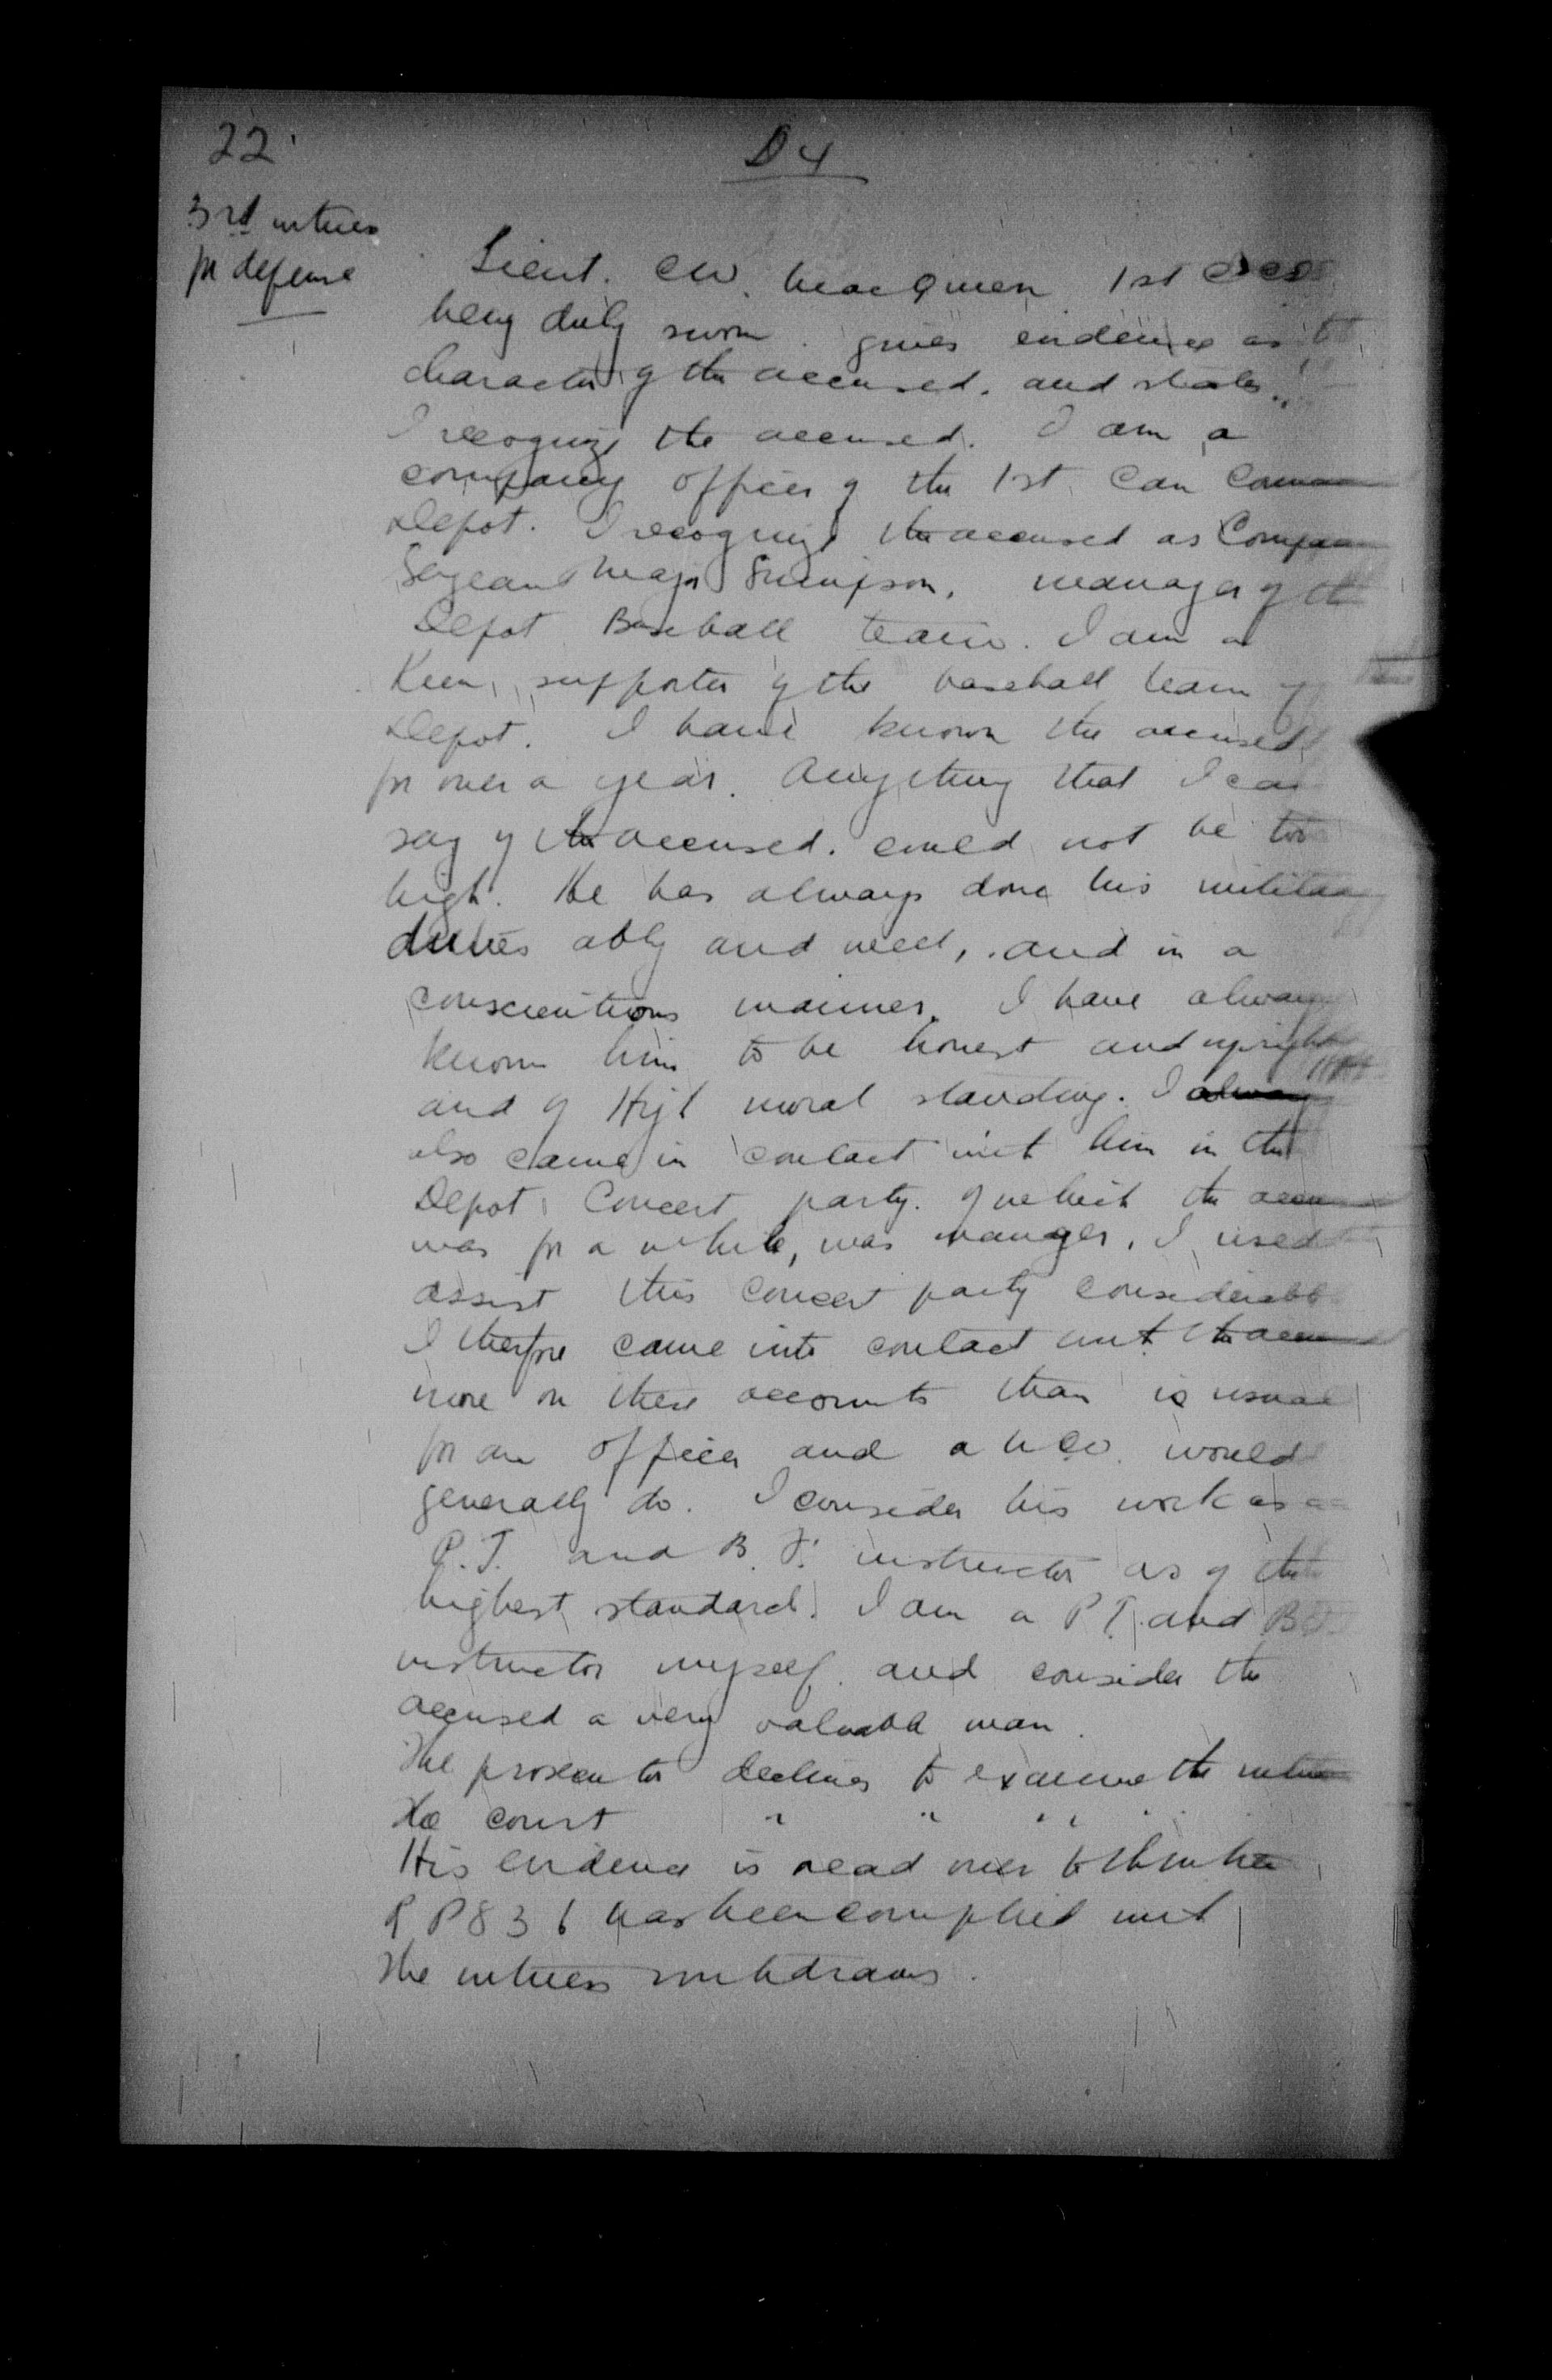 22
D 4
3rd witness
for defense
Lieut. C.W. MacQueen 1st CCD
being duly sworn. gives evidence as to
character of the accused. and states:
I recognize the accused. I am a
company officer of the 1st Can Comm
Depot. I recognize the accused as Compan
Sergeant Major Simpson, manager of the
Depot Baseball team. I am a
Keen supporter of the baseball team of
Depot. I have known the accused
for over a year. Anything that I can
say of the accused. could not be too
high. He has always done his military
duties ably and well, and in a
conscientious manner. I have always
known him to be honest and upright
and of High moral standing. I alway
also came in contact with him in the
Depot Concert party. of which the accu
was for a while, was manager. I used
assist this concert party considerabl
I therfore came into contact with the accu
more on these accounts than is usual
for an officer and a NCO. would
generally do. I consider his work as a
P.T. and B.F. instructor as of the
highest standard. I am a P.T. and B.F.
instructor myself. and consider the
accused a very valuable man.
The prosecutor declines to examine the witness
The court " " "
His evidence is read over to the witness
R P 83 b has been complied with
The witness withdraws.